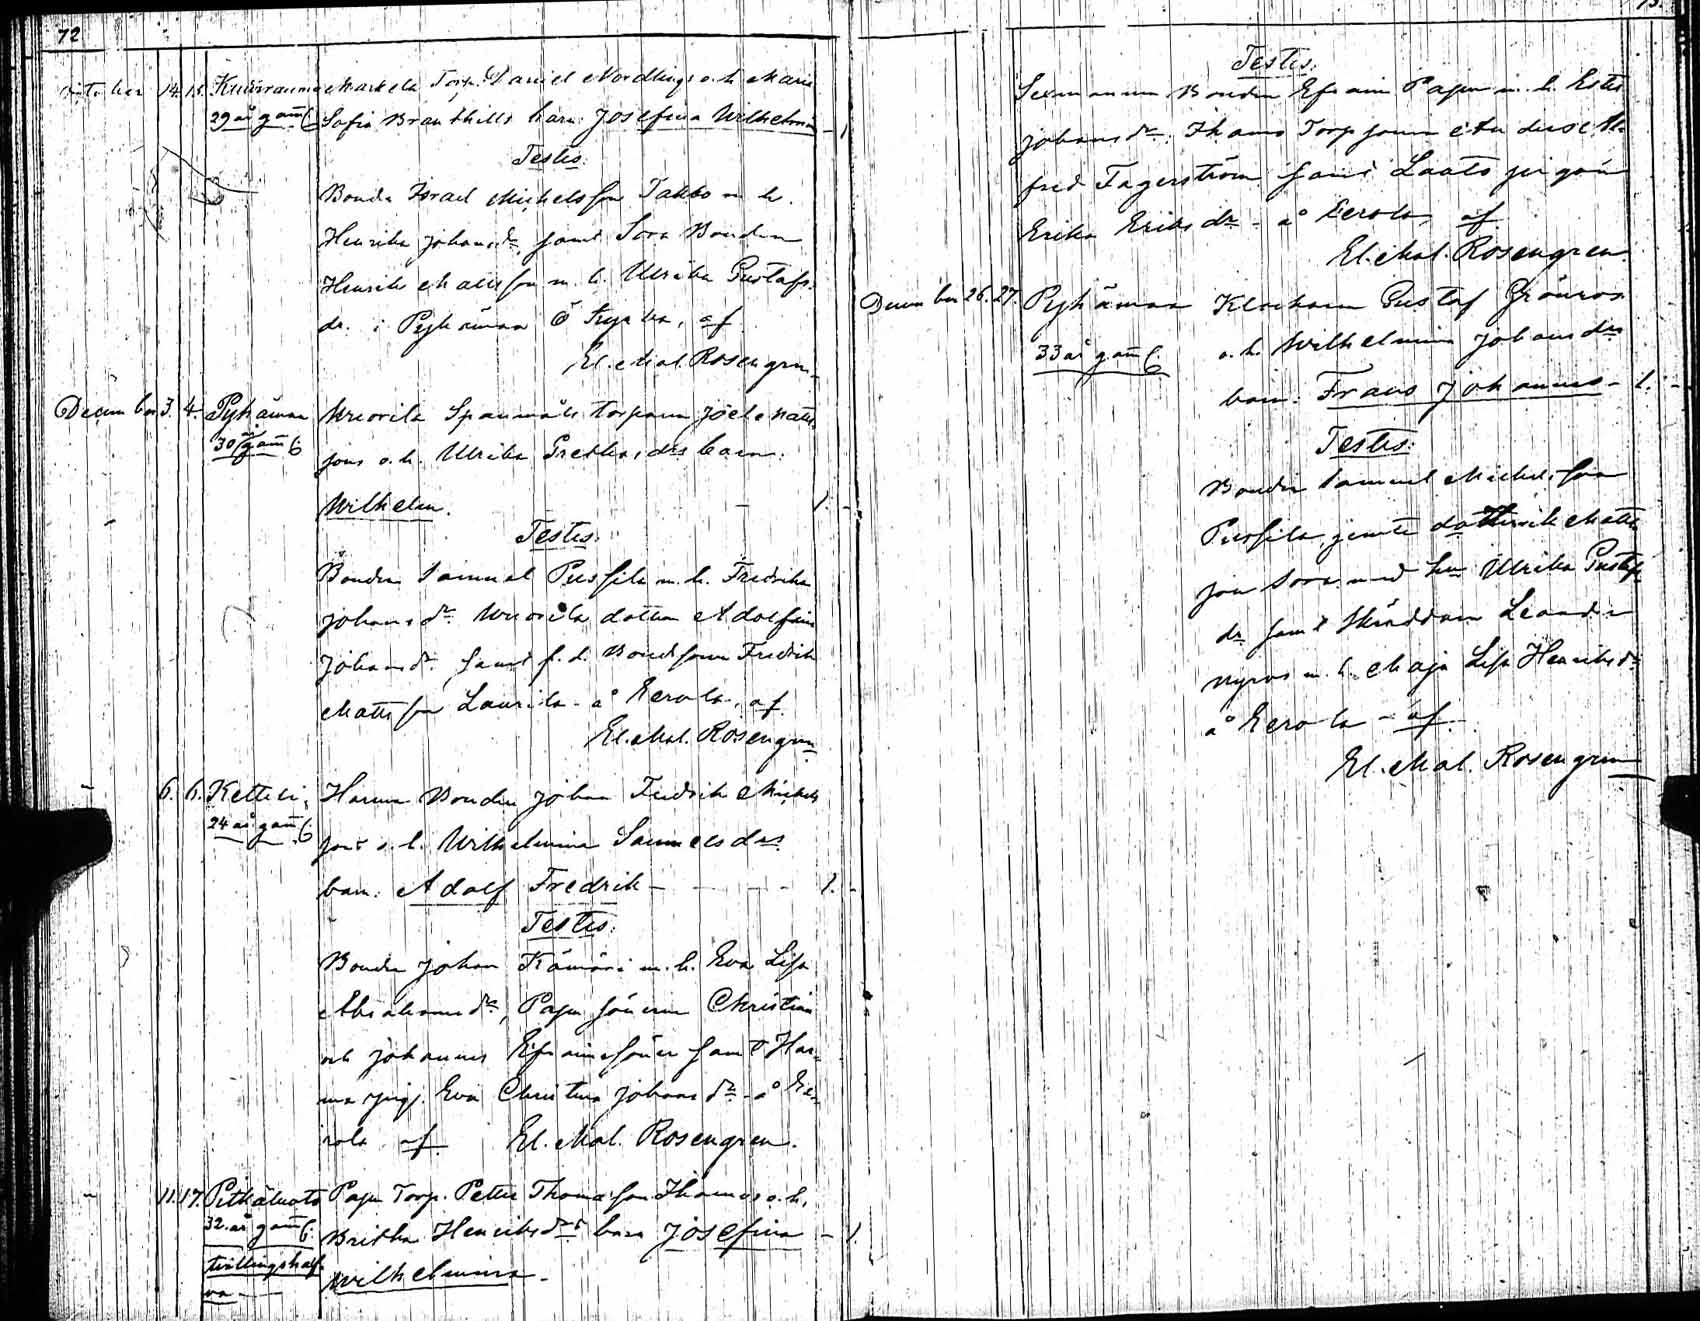 72
October 14. 15. Kuusranna Markela Torp. Daniel Nordlings o. h. Maria
29 år gam. Sofia Branthills barn: Josefina Wilhelmina - 1
Testes:
Bonden Israel Michelsson Takko m. h.
Henrika Johansdr samt Sora Bonden
Henrik Mattsson m. h. Ulrika Gustafs-
dr. i Pyhämaa Ö kyrka, af
El. Mal. Rosengren
December 3. 4. Pyhämaa Wuorila Spanmåls torparen Joel Matts-
30 år gam sons o. h. Ulrika Gretha, drs barn:
Wilhelm. - 1. -
Testes:
Bonden Samuel Pusfila m. h. Fredrika
Johansdr Wuorila dottern Adolfina
Johansdr, samt f. d. Bondsonen Fredrik
Mattsson Laurila å Kerola, af
El. Mal. Rosengren
- 6. 6. Ketteli, Harma Bonden Johan Fredrik Michels
24 år gam sons o. h. Wilhelmina Samuelsdrs
barn: Adolf Fredrik - 1. -
Testes:
Bonden Johan Kämäri m. h. Eva Lisa
Abrahamsdr, Papu sönerna Christian
och Johannes Efraimssöner samt Har-
ma pig. Eva Christina Johansdr å Ke-
rola af El. Mal. Rosengren.
- 11. 17. Pitkäluoto Papu Torp. Petter Thomasson Thomas o. h.
32 år gam Britha Henriksdrs barn Josefina - 1.
tvillingshalf- Wilhelmina -
va
73.
Testes.
Sexmannen Bonden Efraim Papu m. h. Ester
Johansdr. Thomas Torpsonen
fred Fagerström samt Laats pigan
Erika Eriksdr - å Kerola, af
El. Mal. Rosengren.
December 26. 27. Pyhämaa Klockaren Gustaf Grönroos
33 år gam o. h. Wilhelmina Johansdrs
barn: Frans Johannes - 1. -
Testes:
Bonden Samuel Michelsson
Pusfila, jemte Henrik Matts
son Sora med hu Ulrika Gustafs
dr samt Skräddaren Leander
Nyroos m. h. Maja Lisa Henriksdr
å Kerola - af
El. Mal. Rosengren